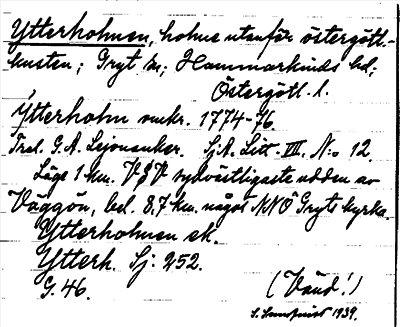 Ytterholmen, holme utanför östergötl.-
kusten; Gryt sn; Hammarkinds hd;
Östergötl. l.
Ytterholm omkr. 1774-76.
Trol. G. A. Lejonanker. SjA. Litt. III. No 12.
Läge 1 km. VSV sydvästligaste udden av
Väggön, bel. 8,7 km. något NNÖ Gryts kyrka.
Ytterholmen ek.
Ytterh. Sj: 252.
G. 46.
(Vänd!)
1939.